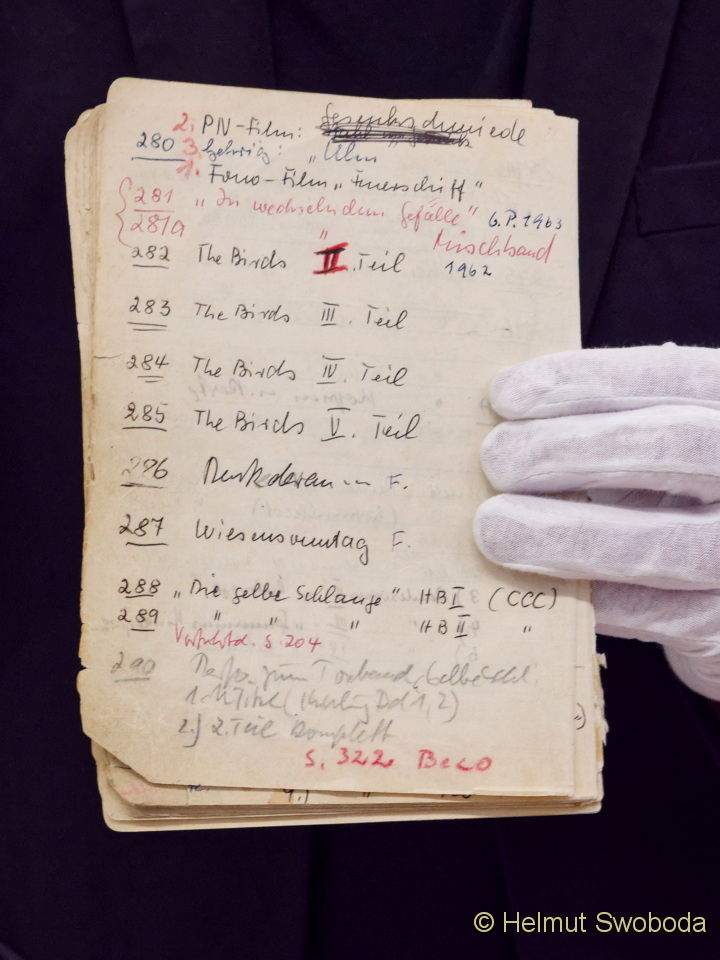 2. PN-Film: Gesenkschmiede
280 3. Gehrig: „Ulm"
1. Fono-Film „Feuerschiff"
281 „In wechselndem Gefälle" G.P. 1963
281a " Mischband
282 The Birds II. Teil 1962
283 The Birds III. Teil
284 The Birds IV. Teil
285 The Birds V. Teil
286 F.
287 Wiesensonntag F.
288 „Die gelbe Schlange" HB I (CCC)
289 " " " HB II "
S. 204
290 zum Tonband
1.) Titel
2.) 2. Teil komplett
S. 322
© Helmut Swoboda